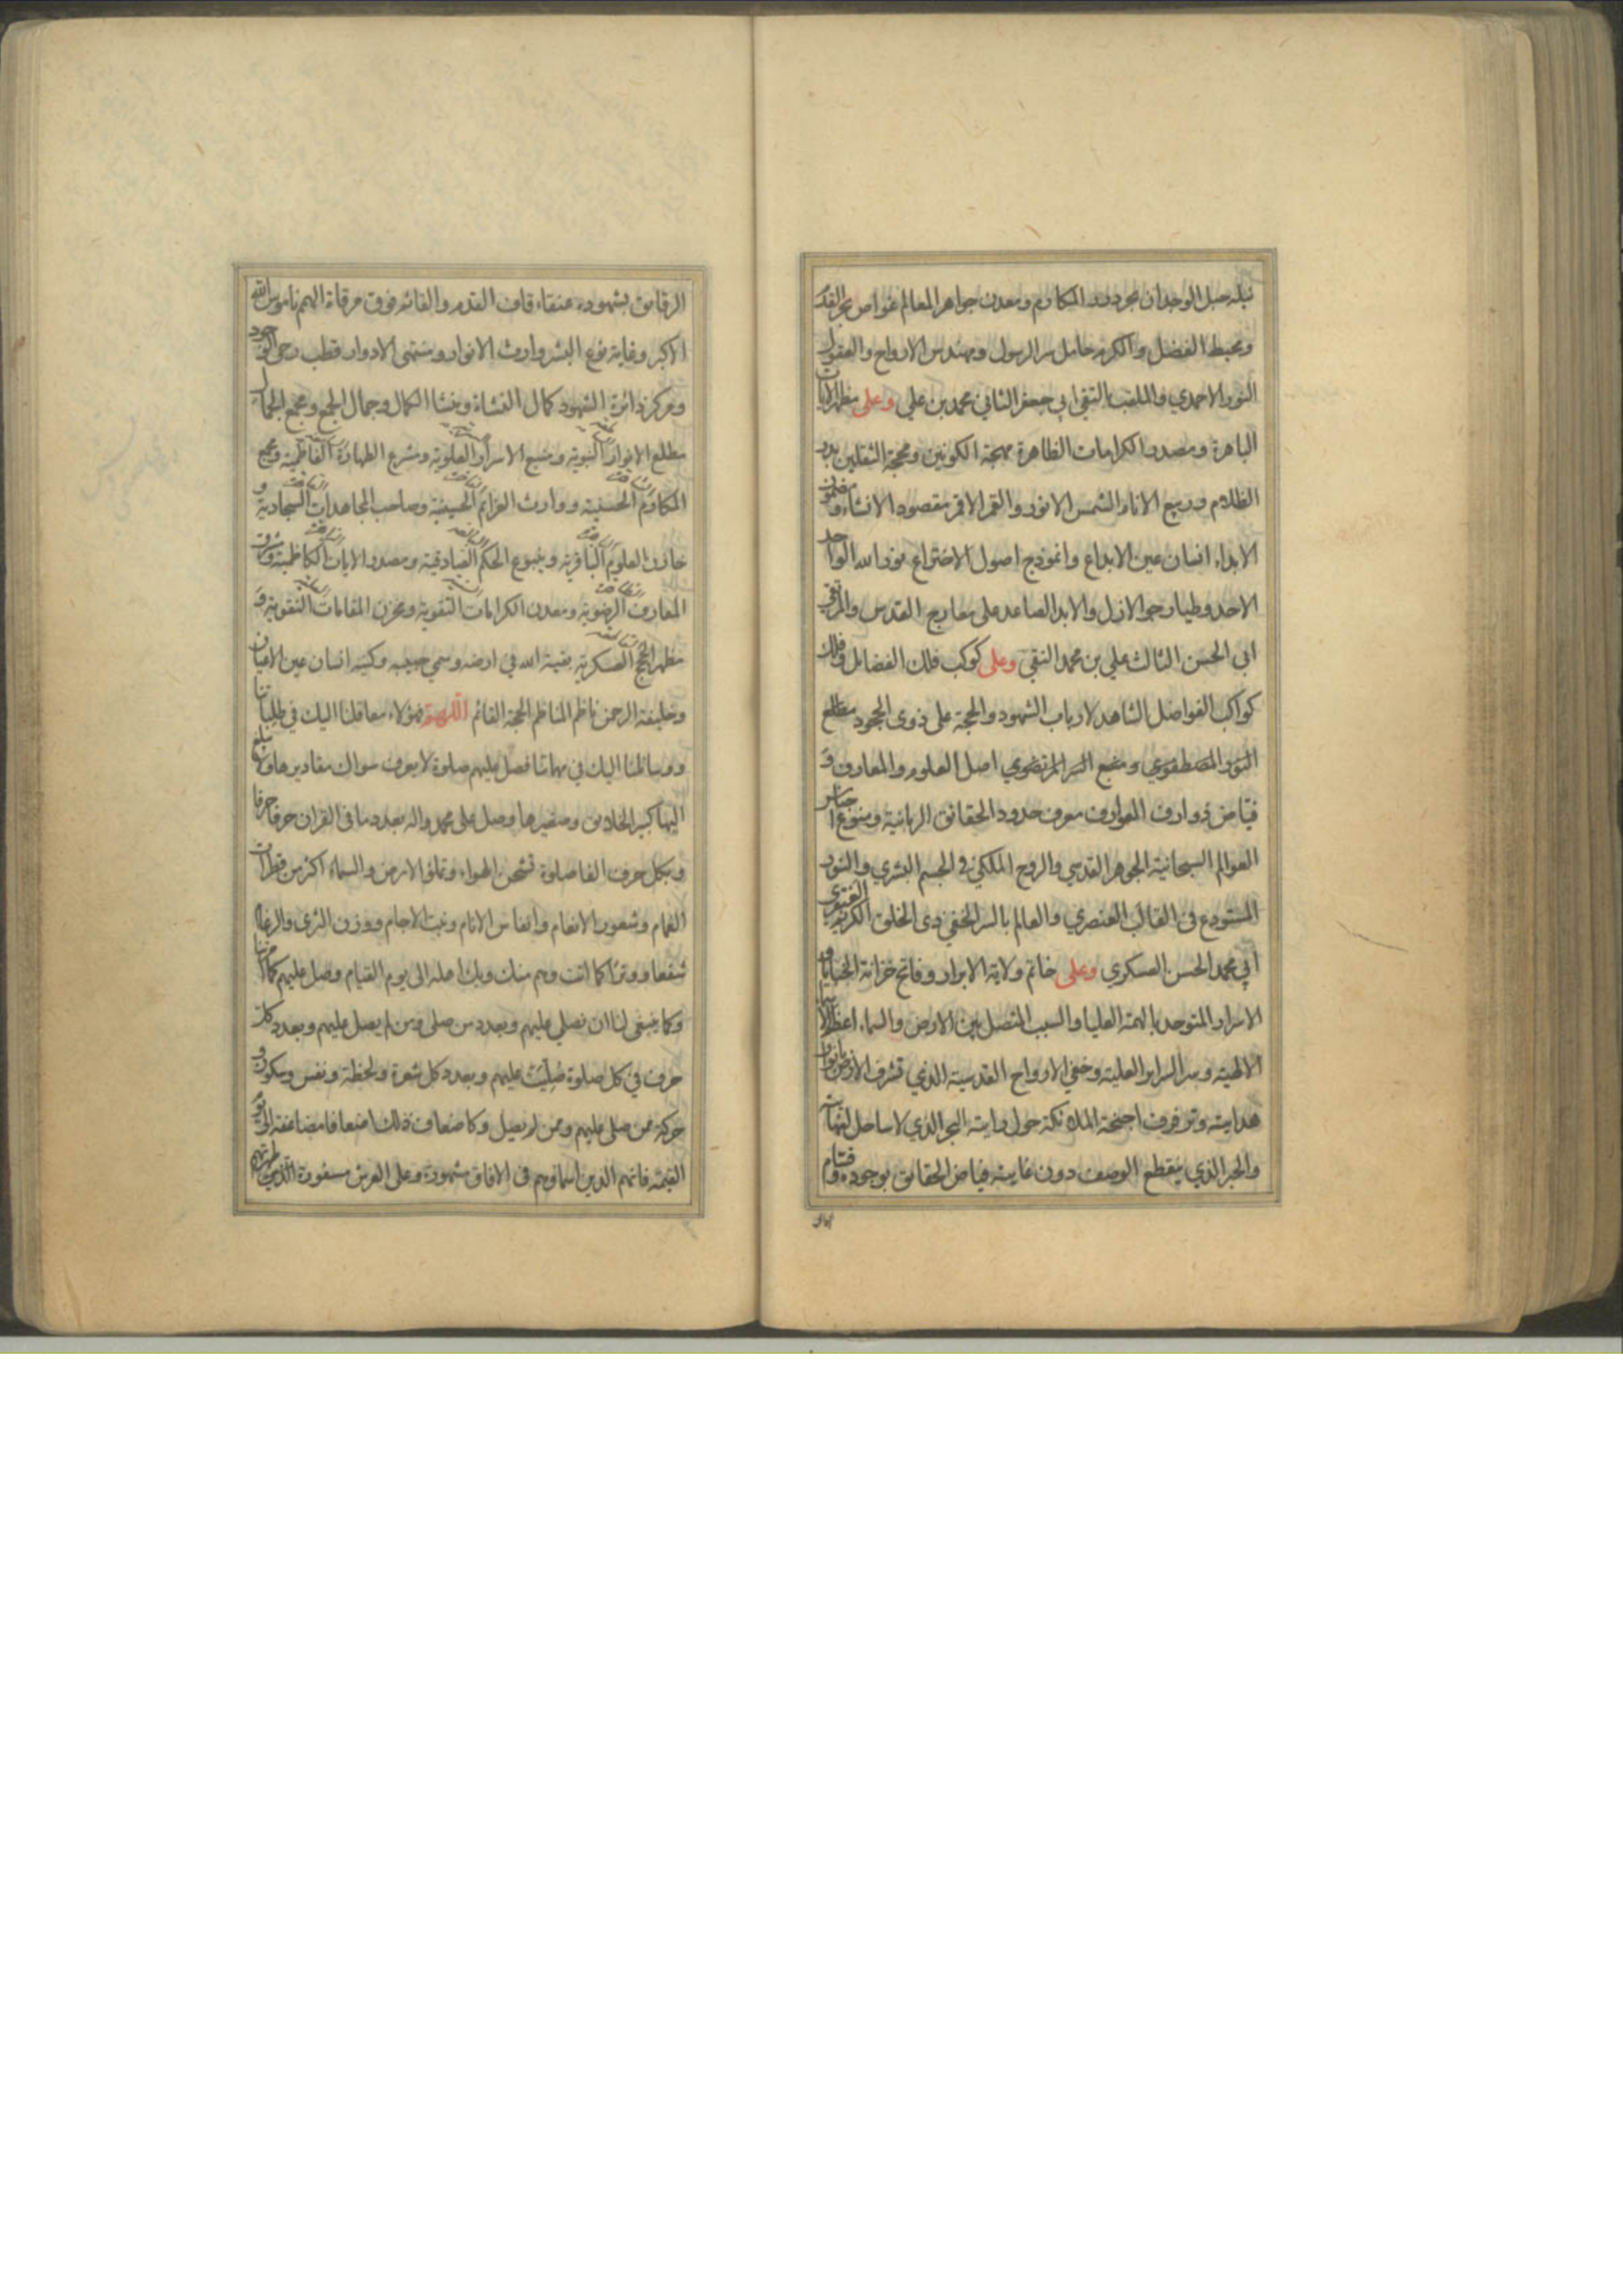 نيله حبل الوجدان محدد المكارم ومعدن جواهر المعالم غواص بحر القدم
ومحيط الفضل والكرم حامل سر الرسول ومهندس الارواح والعقول
النور الاحمدي والملقب بالتقي ابي جعفر الثاني محمد بن علي وعلى مظهر الايات
الباهرة ومصدر الكرامات الظاهرة مهجة الكونين ومحجة الثقلين بدر
الظلام وربيع الانام الشمس الانور والقمر الاقمر مقصود الانشاء ومضمون
الابداء انسان عين الابداع وانموذج اصول الاختراع نور الله الواحد
الاحد وطيار جو الازل والابد الصاعد على معارج القدس والمرتقي
ابي الحسن الثالث علي بن محمد النقي وعلى كوكب فلك الفضايل وفلك
كواكب الفواضل الشاهد لارباب الشهود والحجة على ذوى الجحود مطلع
النور المصطفوي ومنبع السر المرتضوي اصل العلوم والمعارف و
فياض ذوارف العوارف معرف حدود الحقائق الربانية ومنوع اجناس
العوالم السبحانية الجوهر القدسي والروح الملكي في الجسم البشري والنور
المستودع في القالب العنصري والعالم بالسر الخفي ذى الخلق الكريم
ابي محمد الحسن العسكري وعلى خاتم ولاية الابرار وفاتح خزانة الخبايا و
الاسرار المتوحد بالهمة العليا والسبب المتصل بين الارض والسماء اعظم الاسماء
الالهية وسر السراير العلية وخفي الارواح القدسية الذي تشرف الارض بانوار
هدايته وترفرف اجنحة الملائكة حول رايته البحر الذي لا ساحل لنهايته
والحبر الذي ينقطع الوصف دون غايته فياض الحقائق بوجوده وقسام
الرقائق بشهوده عنقاء قاف القدم والقائم فوق مرقاة الهمم ناموس الله
الاكبر وغاية نوع البشر وارث الانوار ومنتهى الادوار قطب رحى الوجود
ومركز دائرة الشهود كمال النشاة ومنشا الكمال وجمال الجمع ومجمع الجمال
مطلع الانوار النبوية ومنبع الاسرار العلوية ومشرع الطهارة الفاطمية ومجمع
المكارم الحسنية ووارث العزائم الحسينية وصاحب المجاهدات السجادية و
خازن العلوم الباقرية وينبوع الحكم الصادقية ومصدر الايات الكاظمية ومشرق
المعارف الرضوية ومعدن الكرامات التقوية ومخزن المقامات النقوية و
مظهر الحجج العسكرية بقية الله في ارضه وسمي حبيبه وكنيه انسان عين الاعيان
وخليفة الرحمن ناظم المناظم الحجة القائم اللهم فهؤلاء معاقلنا اليك في طلباتنا
ووسائلنا اليك في مهماتنا فصل عليهم صلوة لا يعرف سواك مقاديرها ويبلغ
اليها كبير الخلائق وصغيرها وصل على محمد واله بعدد ما في القران حرفا حرفا
وبكل حرف الفا صلوة تشحن الهواء وتملؤ الارض والسماء اكثر من قطرات
الغمام وشعور الانعام وانفاس الانام ونبت الاجام ووزن الثرى والرغام
شفعا ووترا كما انت وهم منك وبك اهله الى يوم القيام وصل عليهم كما امرتنا
وكما ينبغى لنا ان نصلي عليهم وبعدد من صلى ومن لم يصل عليهم وبعدد كل
حرف في كل صلوة صُلِّيَتْ عليهم وبعدد كل شعرة ولحظة ونفس وسكون و
حركة ممن صلى عليهم وممن لم يصل وكاضعاف ذلك اضعافا مضاعفة الى يوم
القيمة فانهم الذين اسماؤهم في الافاق مشهورة وعلى العرش مسفورة الذين